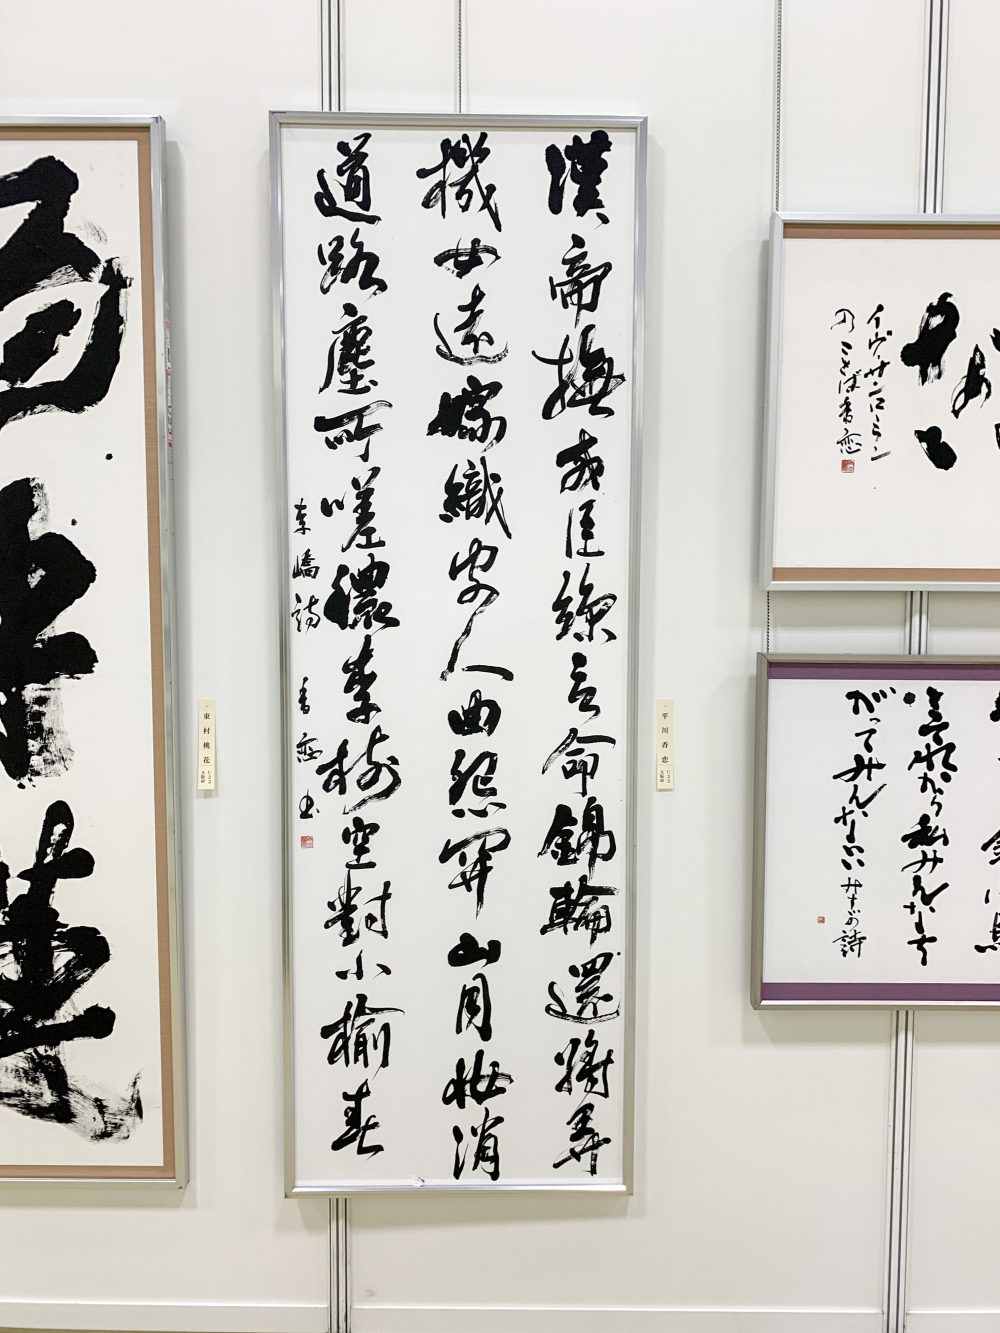 漢帝撫戎臣絲言命錦輪還將弄
機女遠嫁織皮人曲怨關山月妝消
道路塵所嗟穠李樹空對小榆春
李嶠詩 香恋書
平川香恋
東村桃花
イヴ・サンローラン
のことば 香恋
それから私みんなち
がってみんないい みすゞの詩